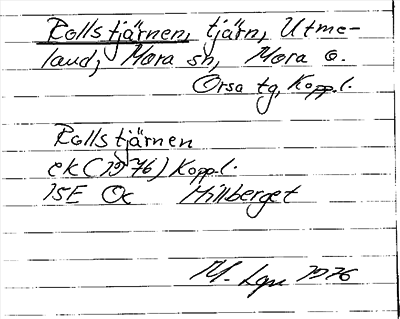 Rollstjärnen, tjärn, Utme-
land, Mora sn, Mora o.
Orsa tg, Koppl.
Rollstjärnen
ek (1976) Koppl.
15E Oc Hillberget
M. 1976